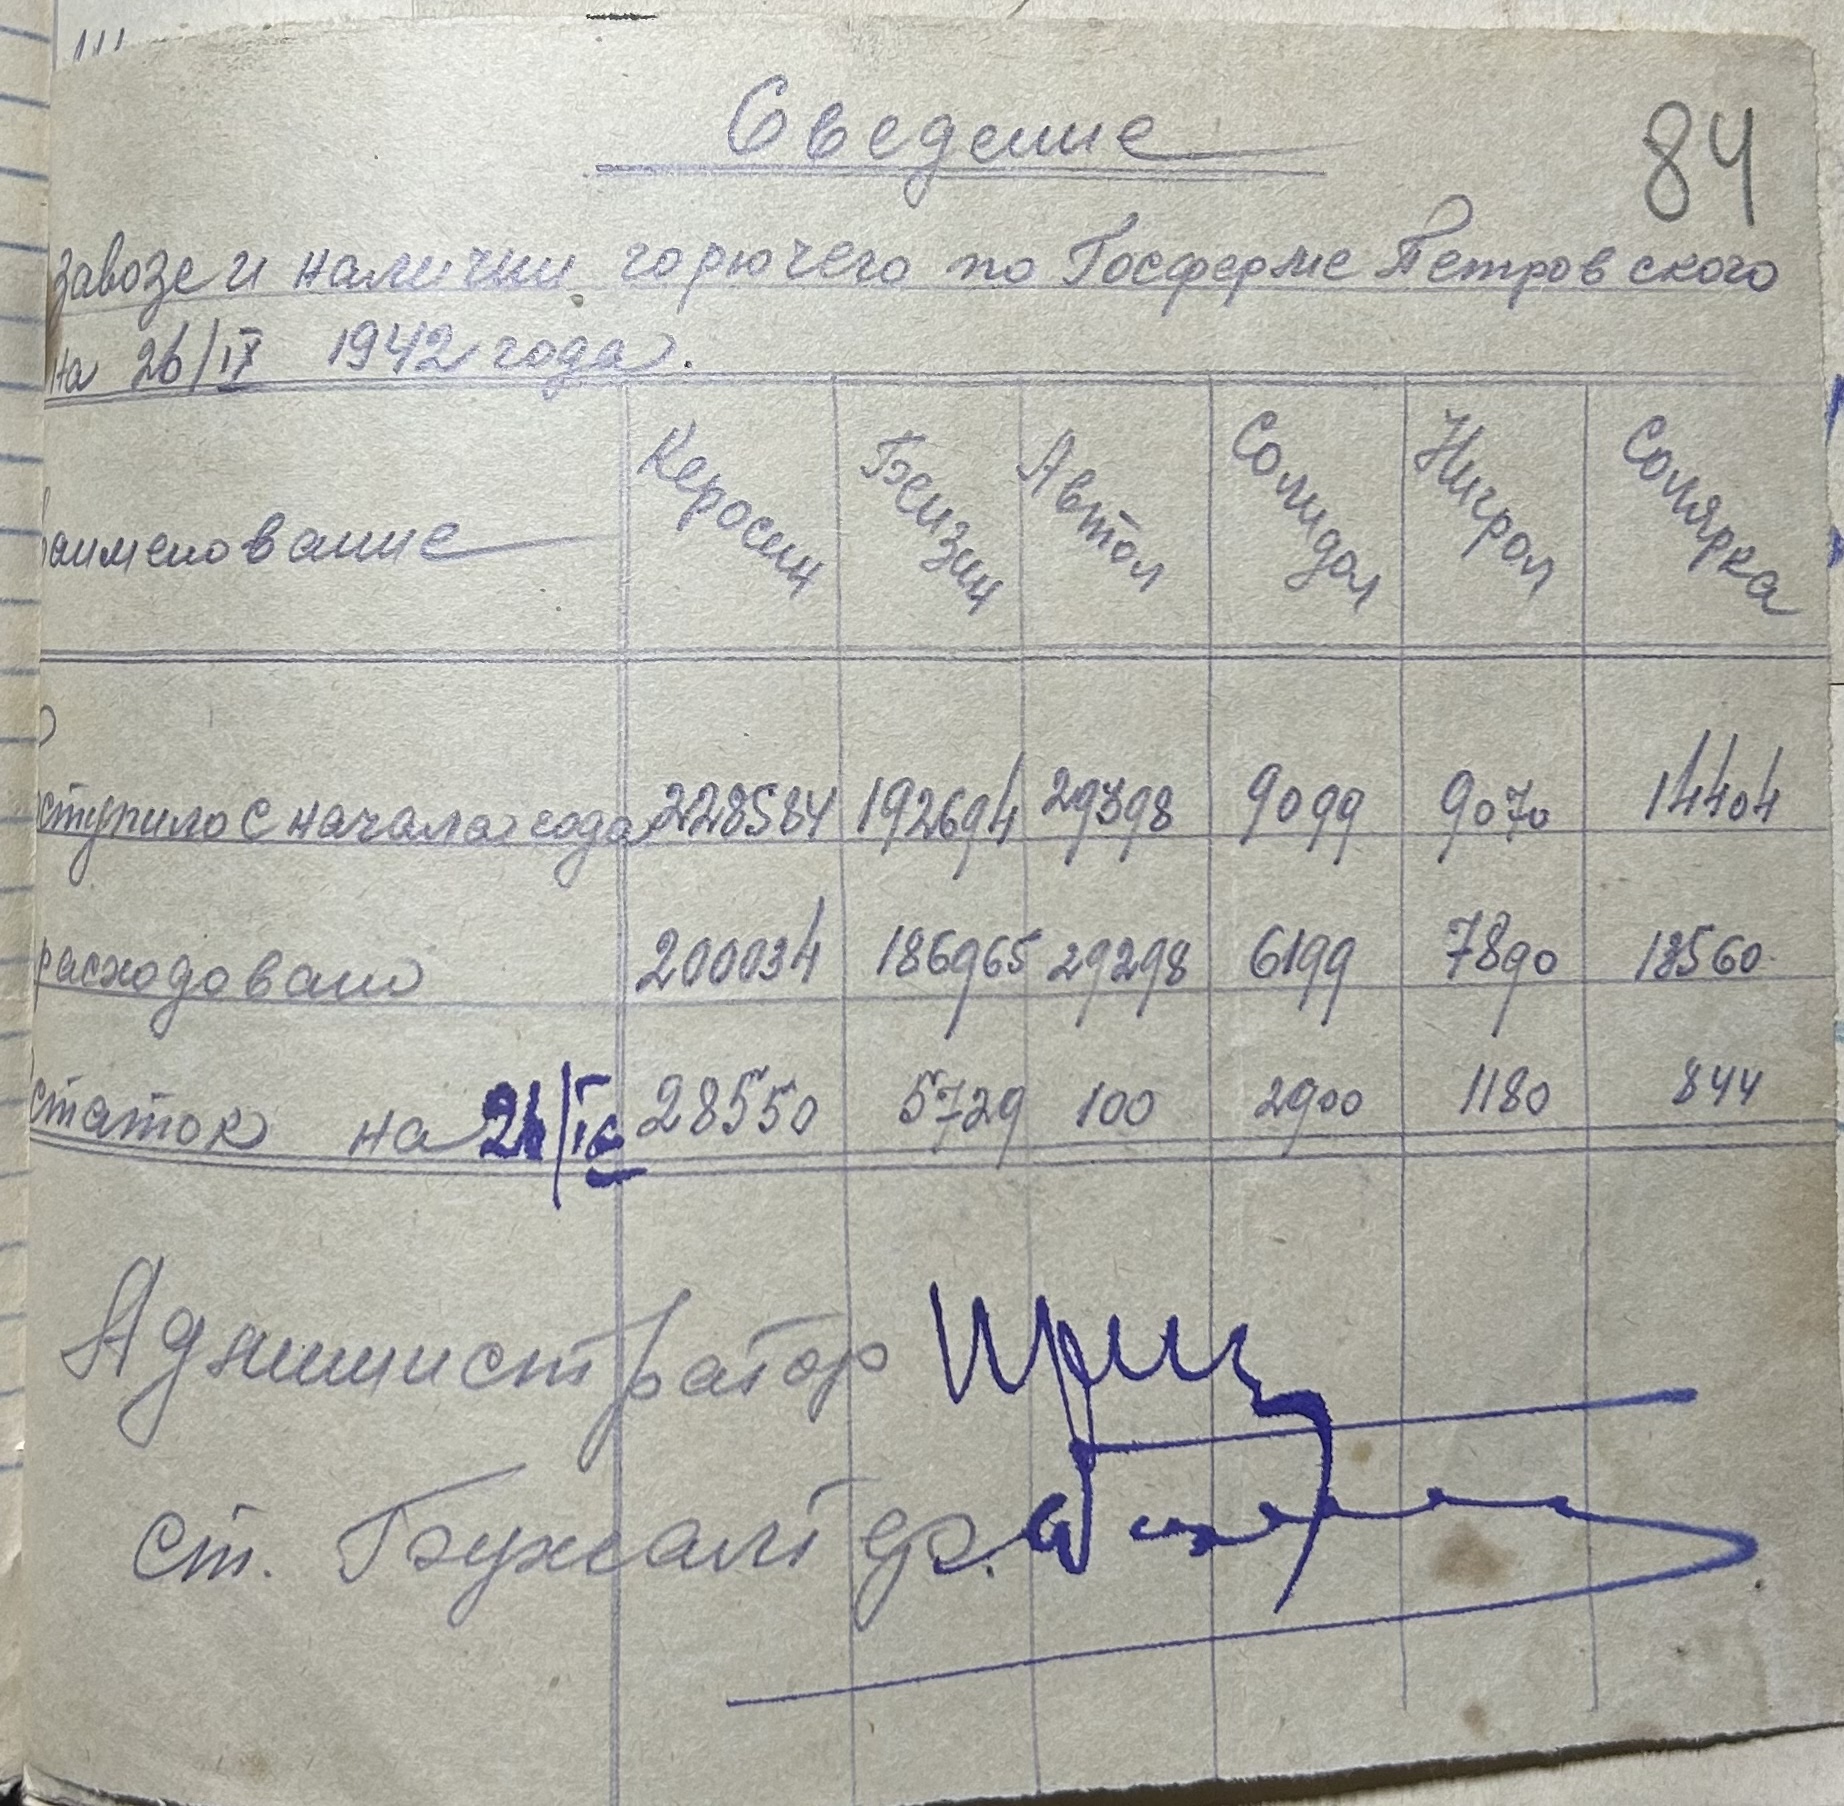 Сведение
84
завозе и наличии горючего по Госферме Петровского
на 26/IX 1942 года.
наименование Керосин Бензин Автол Солидол Нигрол Солярка
Поступило с начала года 228584 192694 29398 9099 9070 14404
расходовано 200034 186965 29298 6199 7890 13560
статок на 26/IX 28550 5729 100 2900 1180 844
Администратор
ст. Бухгалтер.